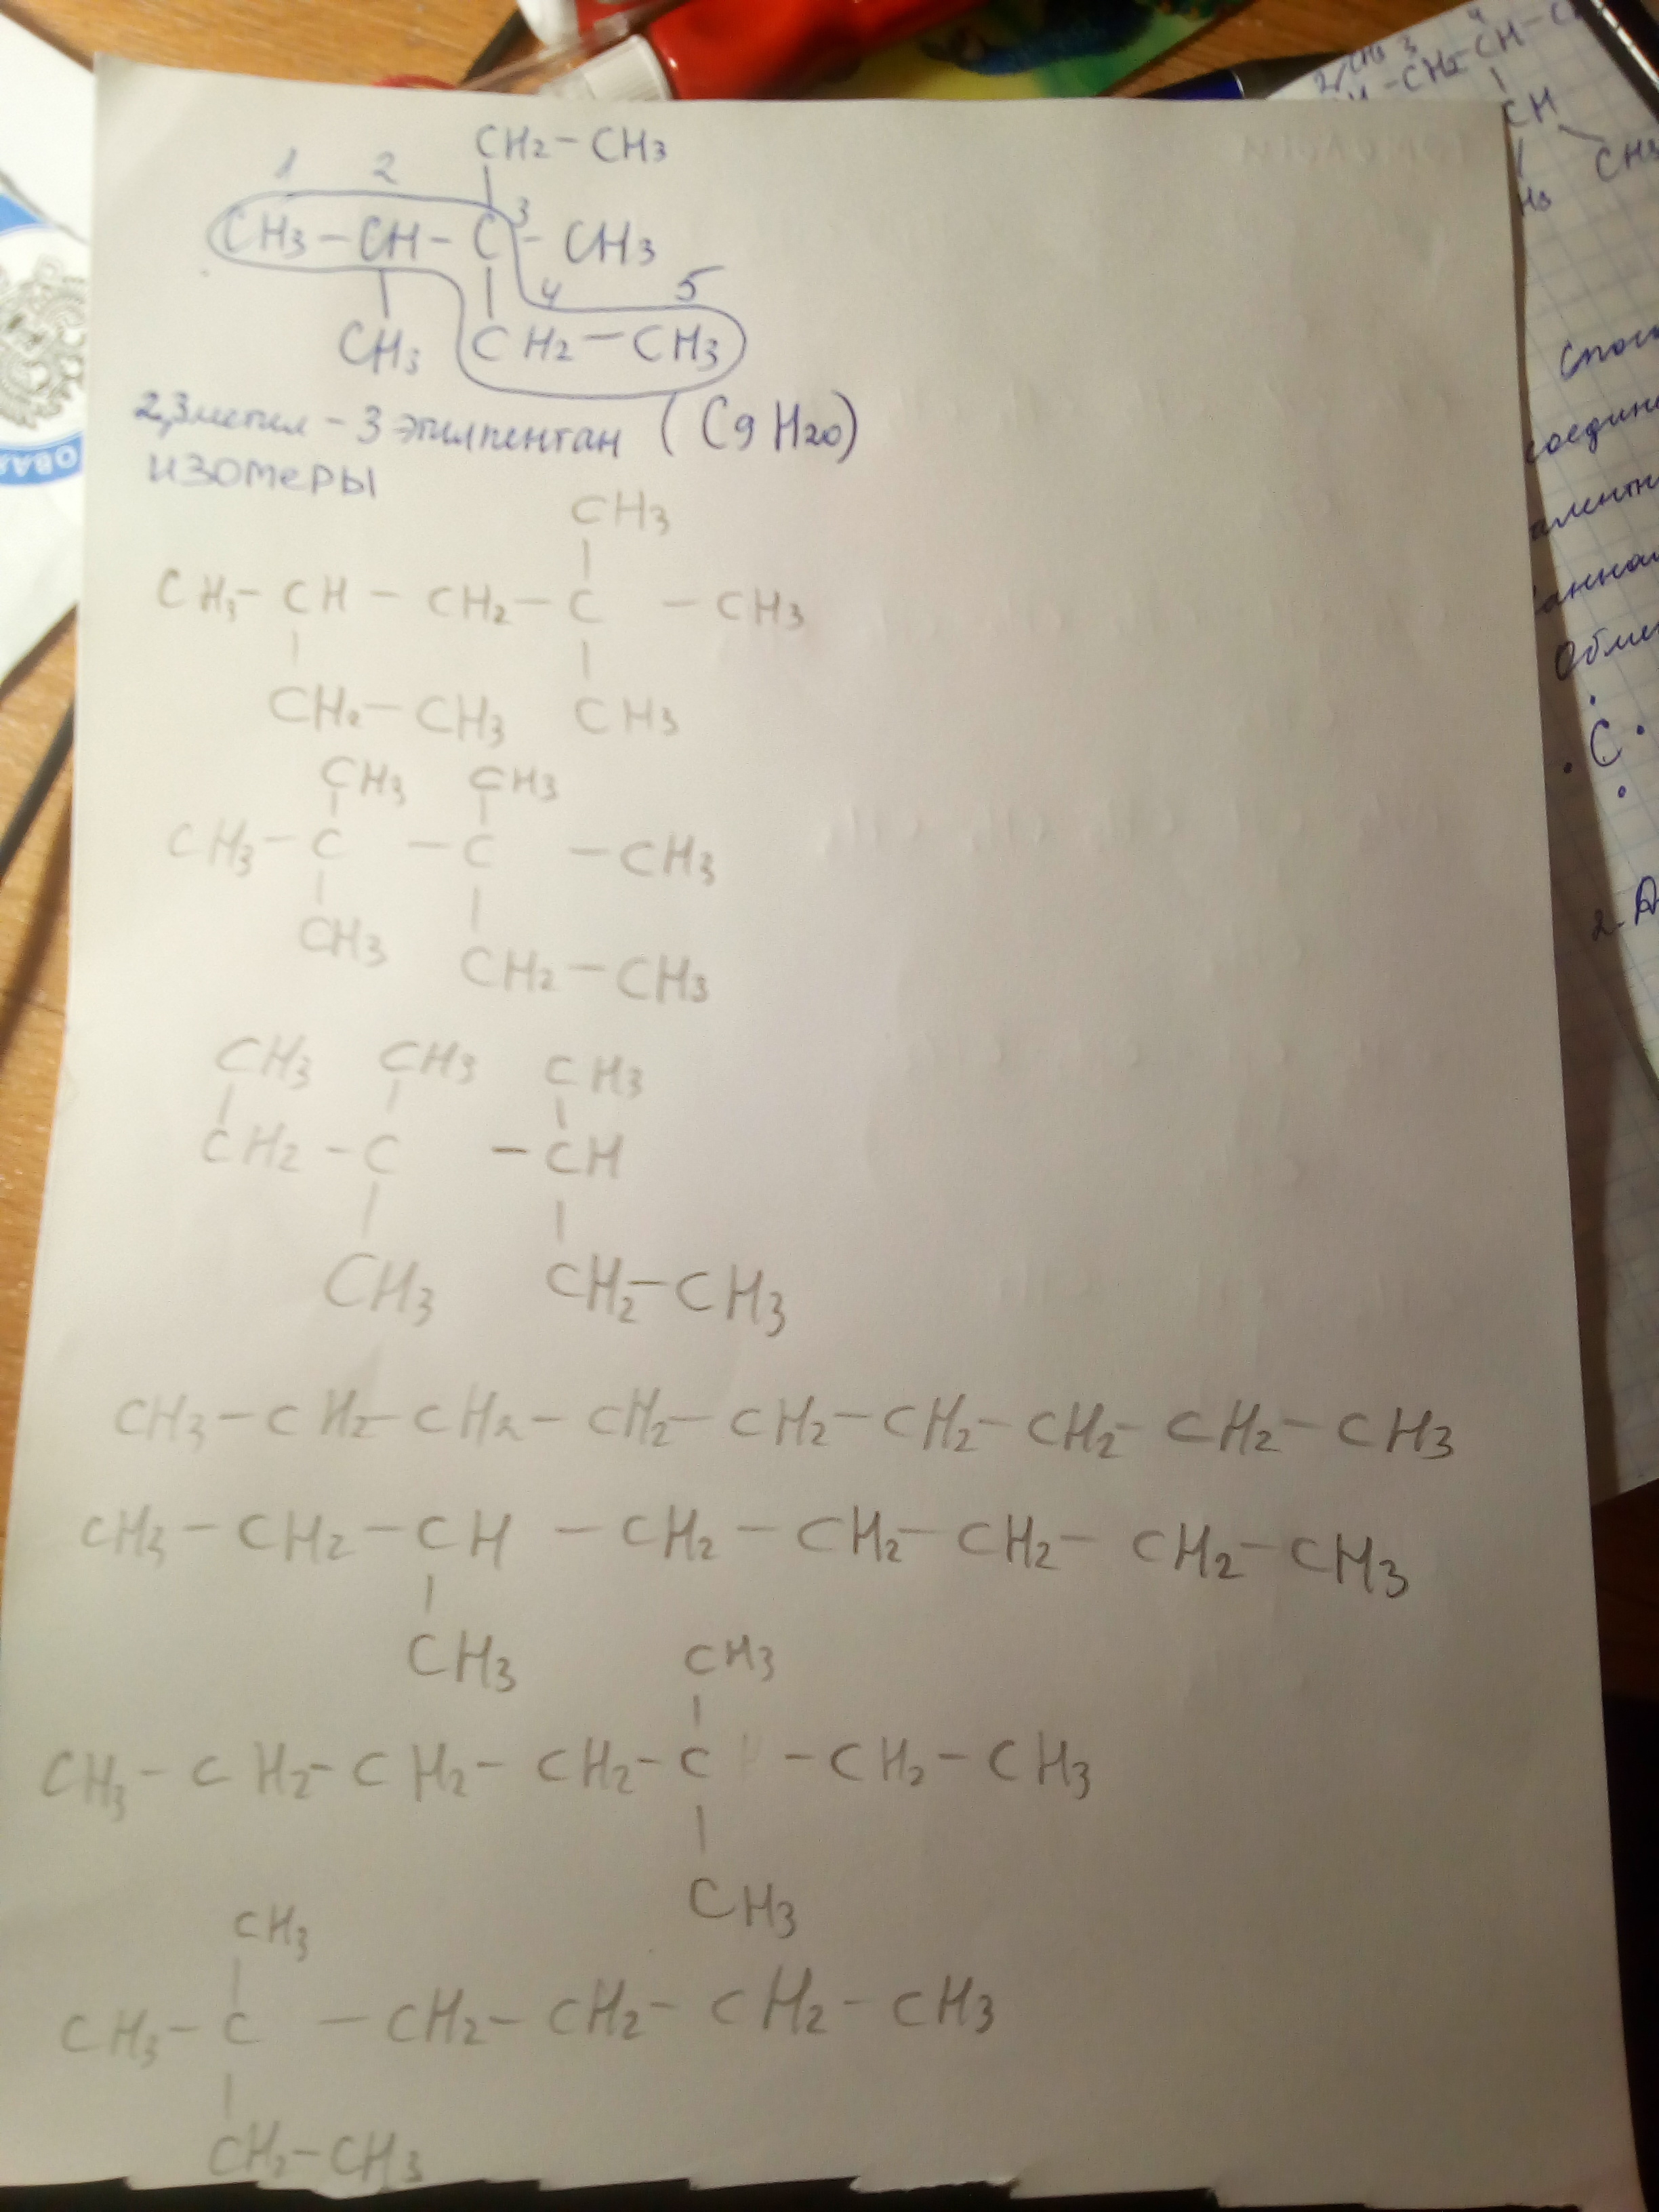 CH2-CH3
1 2 3
CH3-CH-C-CH3
4 5
CH3 CH2-CH3
2,3метил-3 этилпентан (C9H20)
изомеры
CH3
CH3-CH-CH2-C-CH3
CH2-CH3 CH3
CH3 CH3
CH3-C-C-CH3
CH3
CH2-CH3
CH3 CH3 CH3
CH2-C-CH
CH3 CH2-CH3
CH3-CH2-CH2-CH2-CH2-CH2-CH2-CH2-CH3
CH3-CH2-CH-CH2-CH2-CH2-CH2-CH3
CH3 CH3
CH3-CH2-CH2-CH2-C-CH2-CH3
CH3
CH3
CH3-C-CH2-CH2-CH2-CH3
CH2-CH3
3 4
CH3
CH2-CH
CH
CH3
C
2-
ОВАЯ